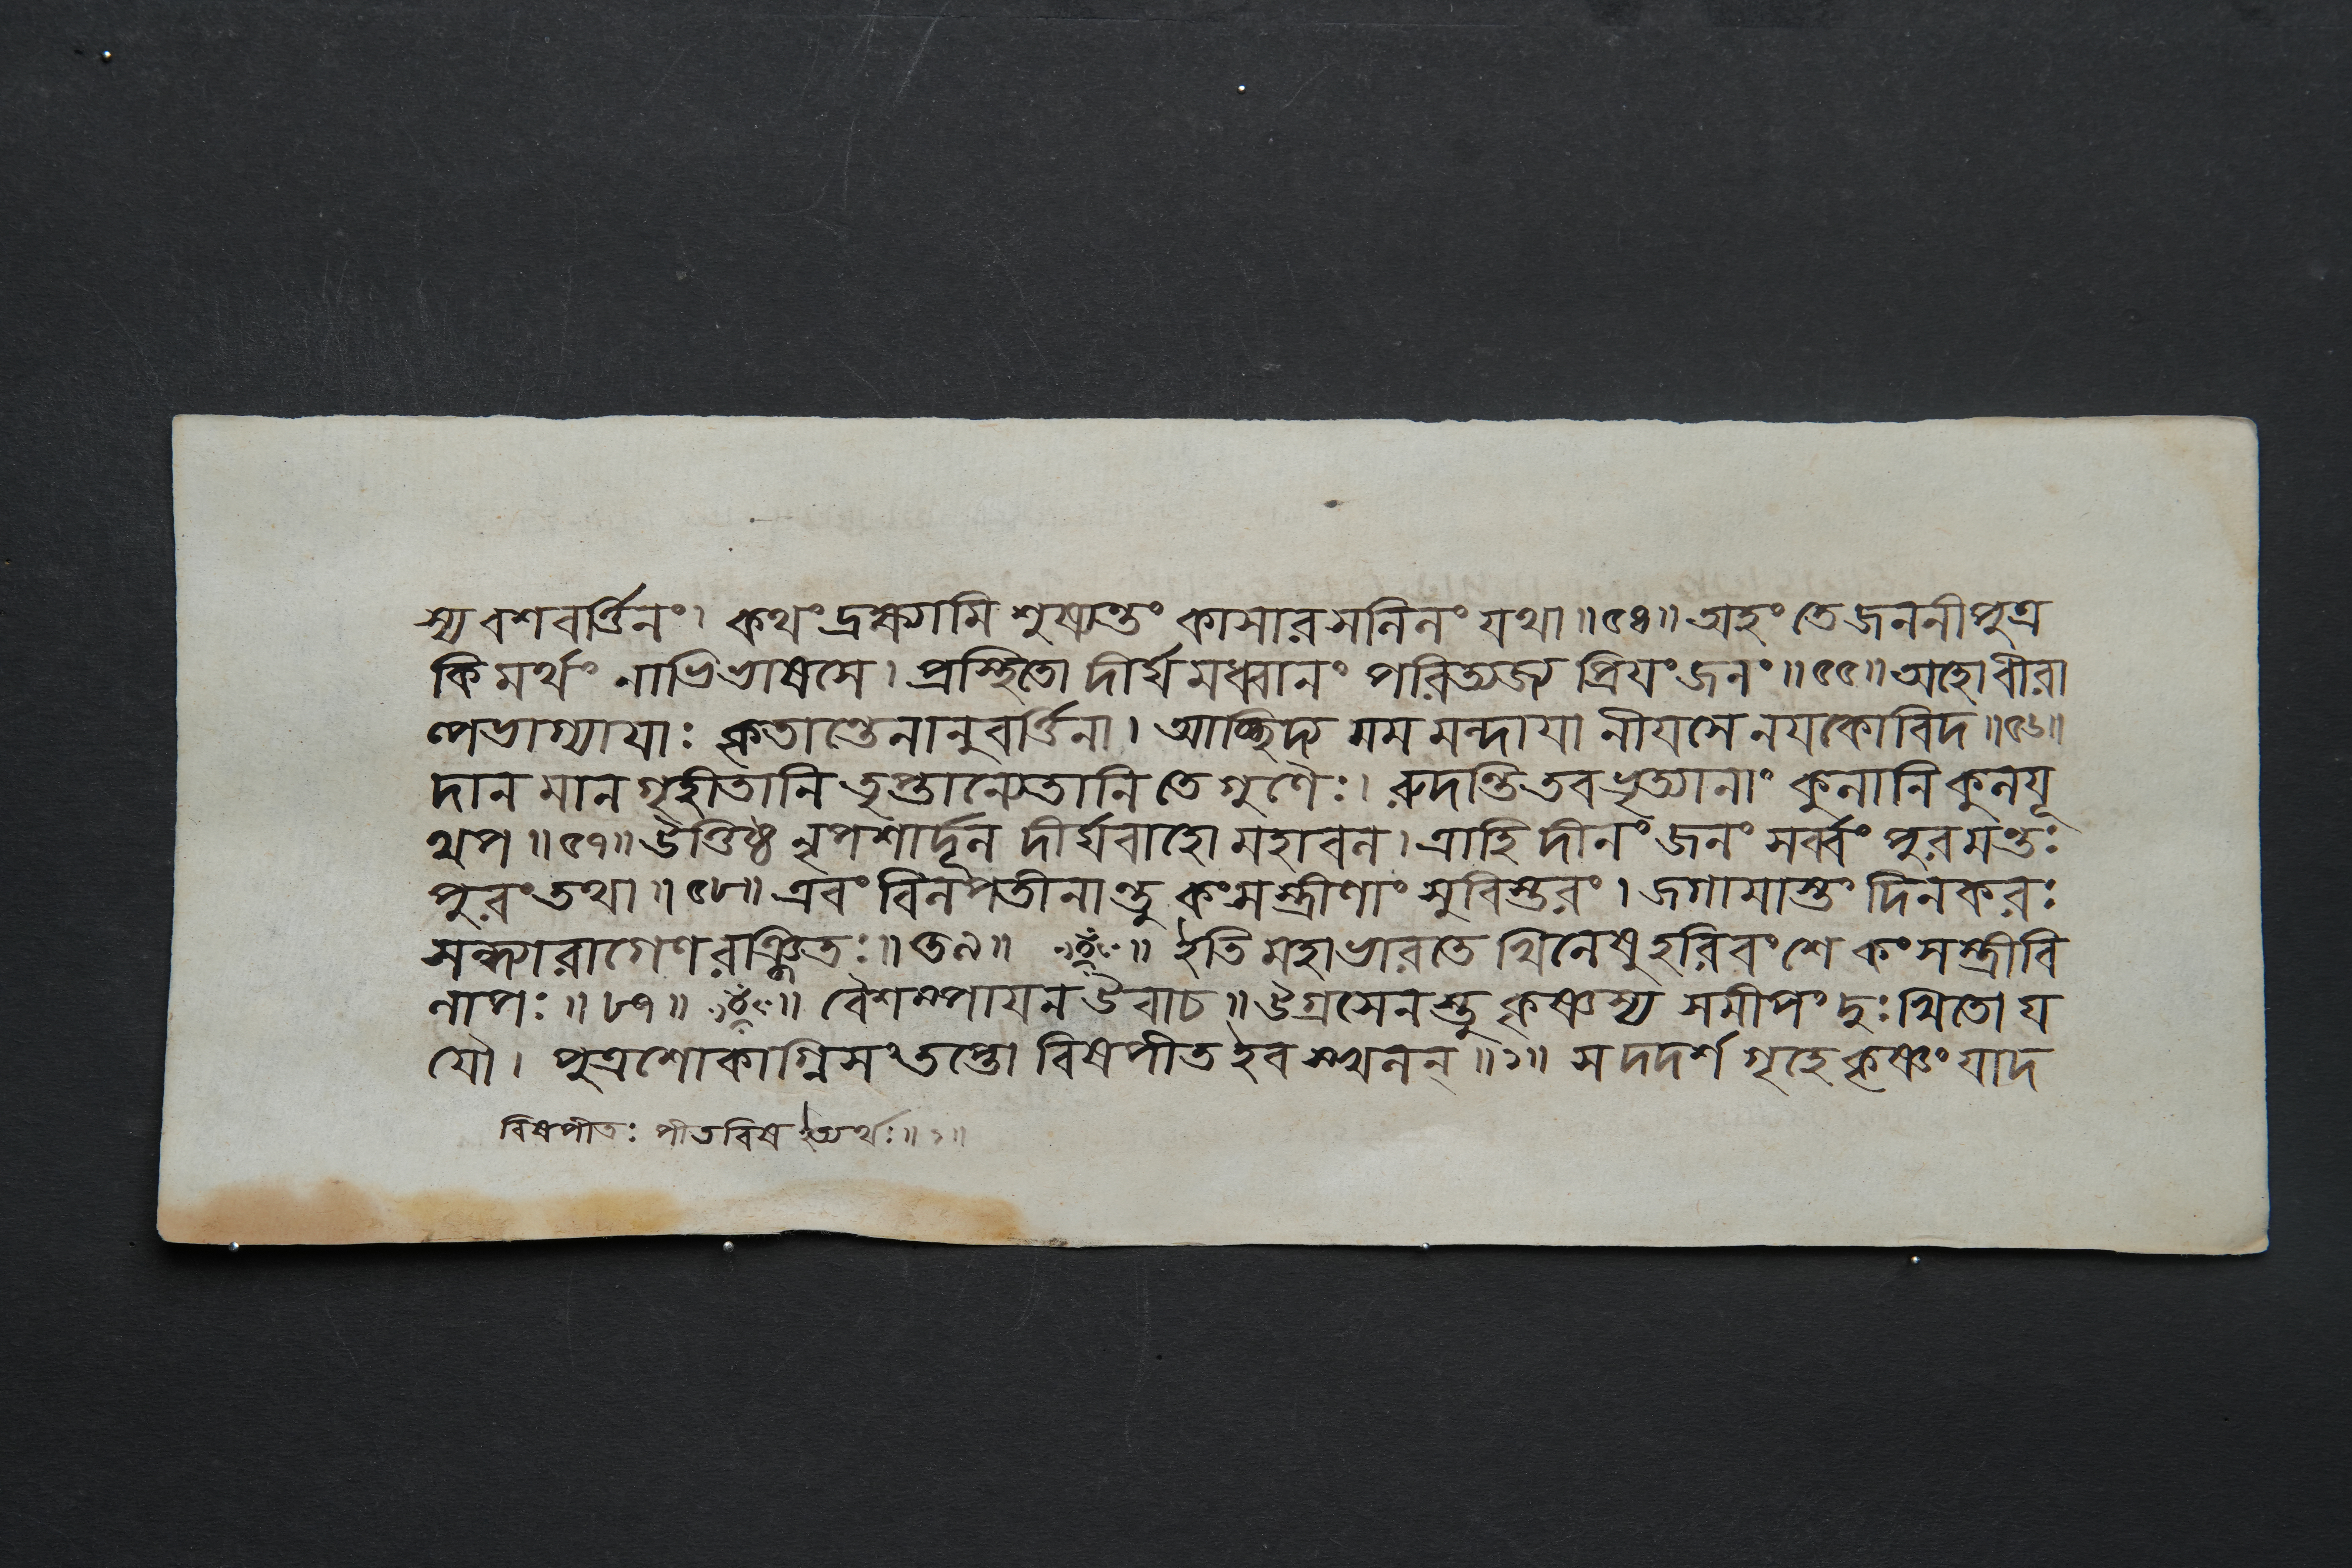 স্য বশবর্ত্তিনং। কথং দ্রক্ষ্যামি শুষ্যন্তং কাসারসলিলং যথা॥৫৪॥ অহং তে জননী পুত্র
কিমর্থং নাভিভাষসে। প্রস্থিতো দীর্ঘমধ্বানং পরিত্যজ্য প্রিযং জনং॥৫৫॥ অহো বীরা
ল্পভাগ্যাযাঃ কৃতান্তেনানুবর্ত্তিনা। আচ্ছিদ্য মম মন্দাযা নীযসে নযকোবিদ॥৫৬॥
দানমানগৃহীতানি তৃপ্তান্যেতানি তে গুণৈঃ। রুদন্তি তব ভৃত্যানাং কুলানি কুলযূ
থপ॥৫৭॥ উত্তিষ্ঠ নৃপশার্দূল দীর্ঘবাহো মহাবল। ত্রাহি দীনং জনং সর্ব্বং পুরমন্তঃ
পুরং তথা॥৫৮॥ এবং বিলপতীনান্তু কংসস্ত্রীণাং সুবিস্তরং। জগামাস্তং দিনকরঃ
সন্ধ্যারাগেণ রঞ্জিতঃ॥৫৯॥ ॥ ইতি মহাভারতে খিলেষু হরিবংশে কংসস্ত্রীবি
লাপঃ॥৮৭॥ ॥ বৈশম্পাযন উবাচ॥ উগ্রসেনস্তু কৃষ্ণস্য সমীপং দুঃখিতো য
যৌ। পুত্রশোকাগ্নিসংতপ্তো বিষপীত ইব স্খলন্॥১॥ স দদর্শ গৃহে কৃষ্ণং যাদ
বিষপীতঃ পীতবিষ ইত্যর্থঃ॥১॥